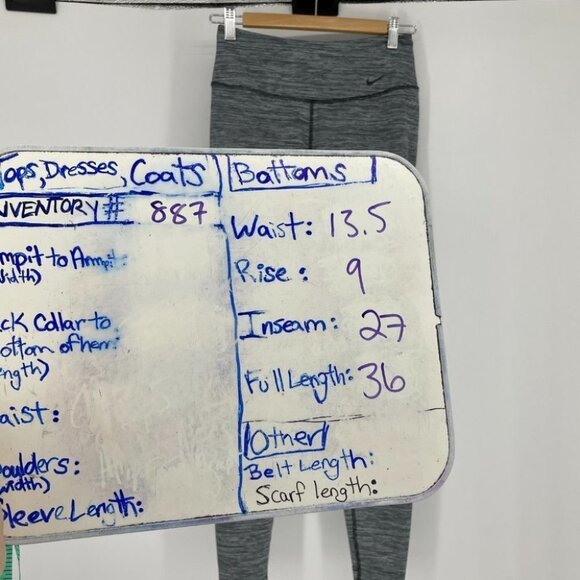 Tops, Dresses, Coats
NVENTORY# 887
mpit to Armpit:
idth)
ck Collar to
ottom of hem:
ngth)
aist:
oulders:
width)
leeve Length:
Bottoms
Waist: 13.5
Rise: 9
Inseam: 27
Full Length: 36
Other
Belt Length:
Scarf length: